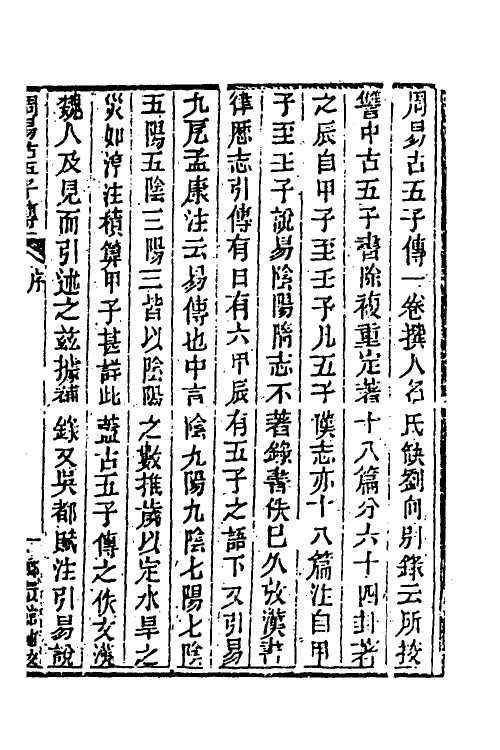 周易古五子傳一卷撰人名氏缺劉向別錄云所挍
讐中古五子書除複重定著十八篇分六十四卦著
之辰自甲子至壬子凡五子漢志亦十八篇注自甲
子至壬子說易陰陽隋志不著錄書佚已久攷漢書
律厯志引傳有曰有六甲辰有五子之語下又引易
九戹孟康注云易傳也中言陰九陽九陰七陽七陰
五陽五陰三陽三皆以陰陽之數推歲以定水旱之
災如淳注積算甲子甚詳此蓋古五子傳之佚文漢
魏人及見而引述之兹據補錄又吳都賦注引易說
周易古五子傳 序 一